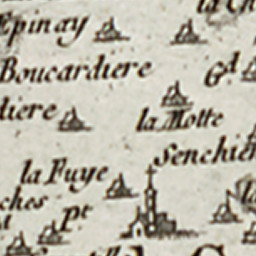 la Ch
Epinay
Boucardiere
Gd
diere
la Motte
Senchien
la Fuye
ches
Pt